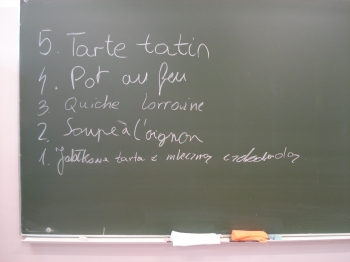 5. Tarte tatin
4. Pot au feu
3. Quiche Lorraine
2. Soupe à l'oignon
1. Jabłkowa tarta z mleczną czekoladą